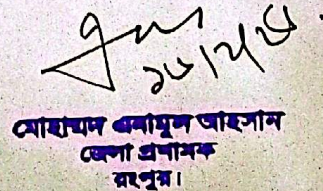 মোহাম্মদ এনামুল আহসান
জেলা প্রশাসক
রংপুর।